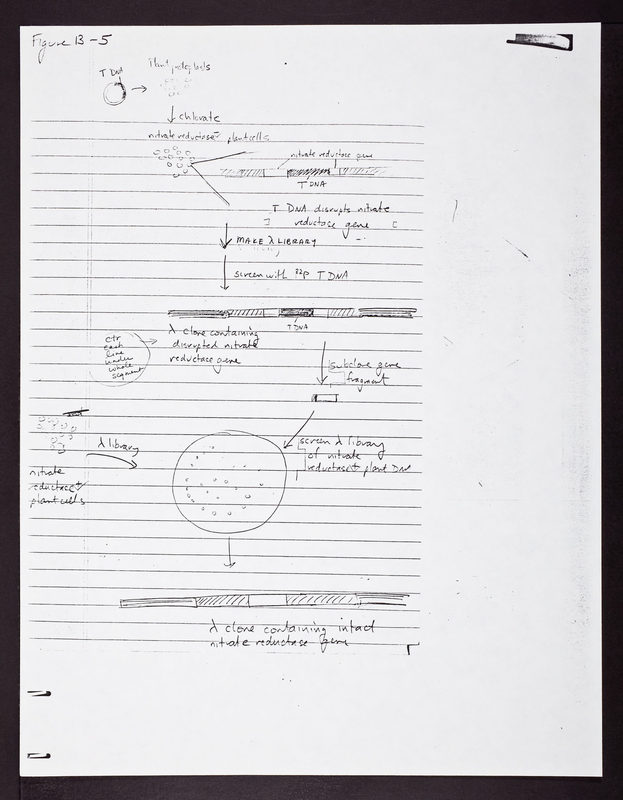 Figure 13-5
T DNA
Plant protoplasts
chlorate
nitrate reductase⁻ plant cells
nitrate reductase gene
T DNA
T DNA disrupts nitrate
reductase gene
MAKE λ LIBRARY
screen with ³²P T DNA
T DNA
λ clone containing
disrupted nitrate
reductase gene
ctr
each
line
under
whole
segment
subclone gene
fragment
λ library
screen λ library
of nitrate
reductase⁺ plant DNA
nitrate
reductase⁺
plant cells
λ clone containing intact
nitrate reductase gene